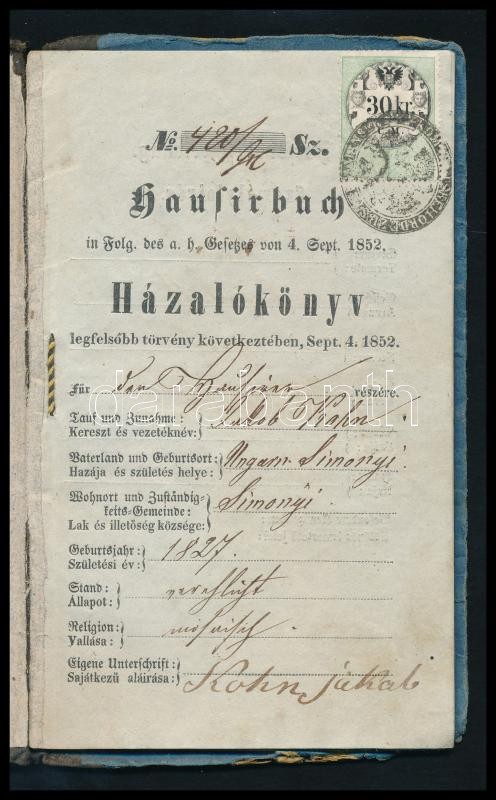 30 kr.
C. M.
No. 420/ Sz.
Hausirbuch
in Folg. des a. h. Gesetzes von 4. Sept. 1852.
Házalókönyv
legfelsőbb törvény következtében, Sept. 4. 1852.
Für den Hausirer részére.
Tauf und Zuname:
Kereszt és vezetéknév: Jakob Kohn
Vaterland und Geburtsort:
Hazája és születés helye: Ungarn Simonyi.
Wohnort und Zuständig-
keits-Gemeinde:
Lak és illetőség községe: Simonyi.
Geburtsjahr:
Születési év: 1827.
Stand:
Állapot: verehlicht
Religion:
Vallása: mosaisch.
Eigene Unterschrift:
Sajátkezű aláirása: Kohn jakab
darabanth